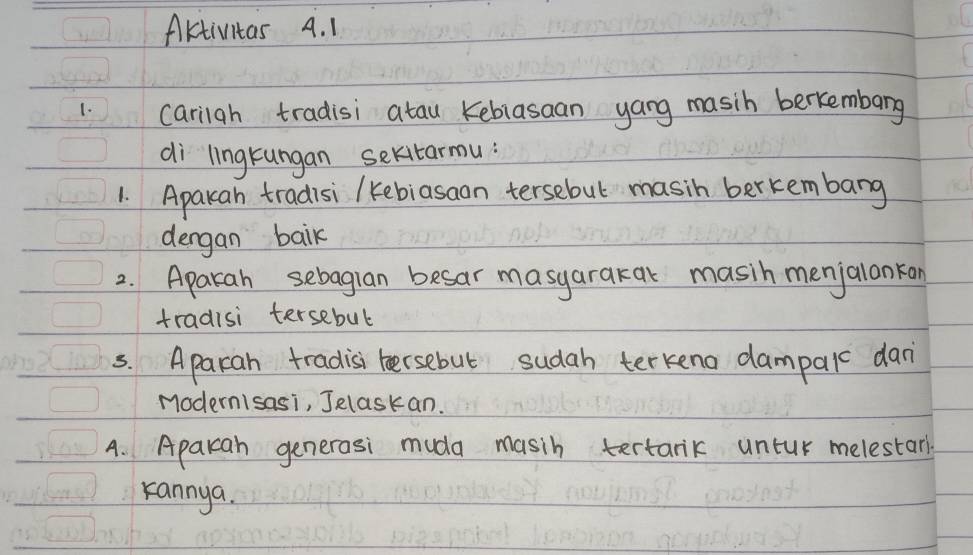 Aktivitas 4.1
1. carilah tradisi atau kebiasaan yang masih berkembang
di lingkungan sekitarmu:
1. Apakah tradisi / kebiasaan tersebut masih berkembang
dengan baik
2. Apakah sebagian besar masyarakat masih menjalankan
tradisi tersebut
3. Apakah tradisi tersebut sudah terkena dampak dari
Modernisasi, Jelaskan.
4. Apakah generasi muda masih tertarik untuk melestari-
kannya.